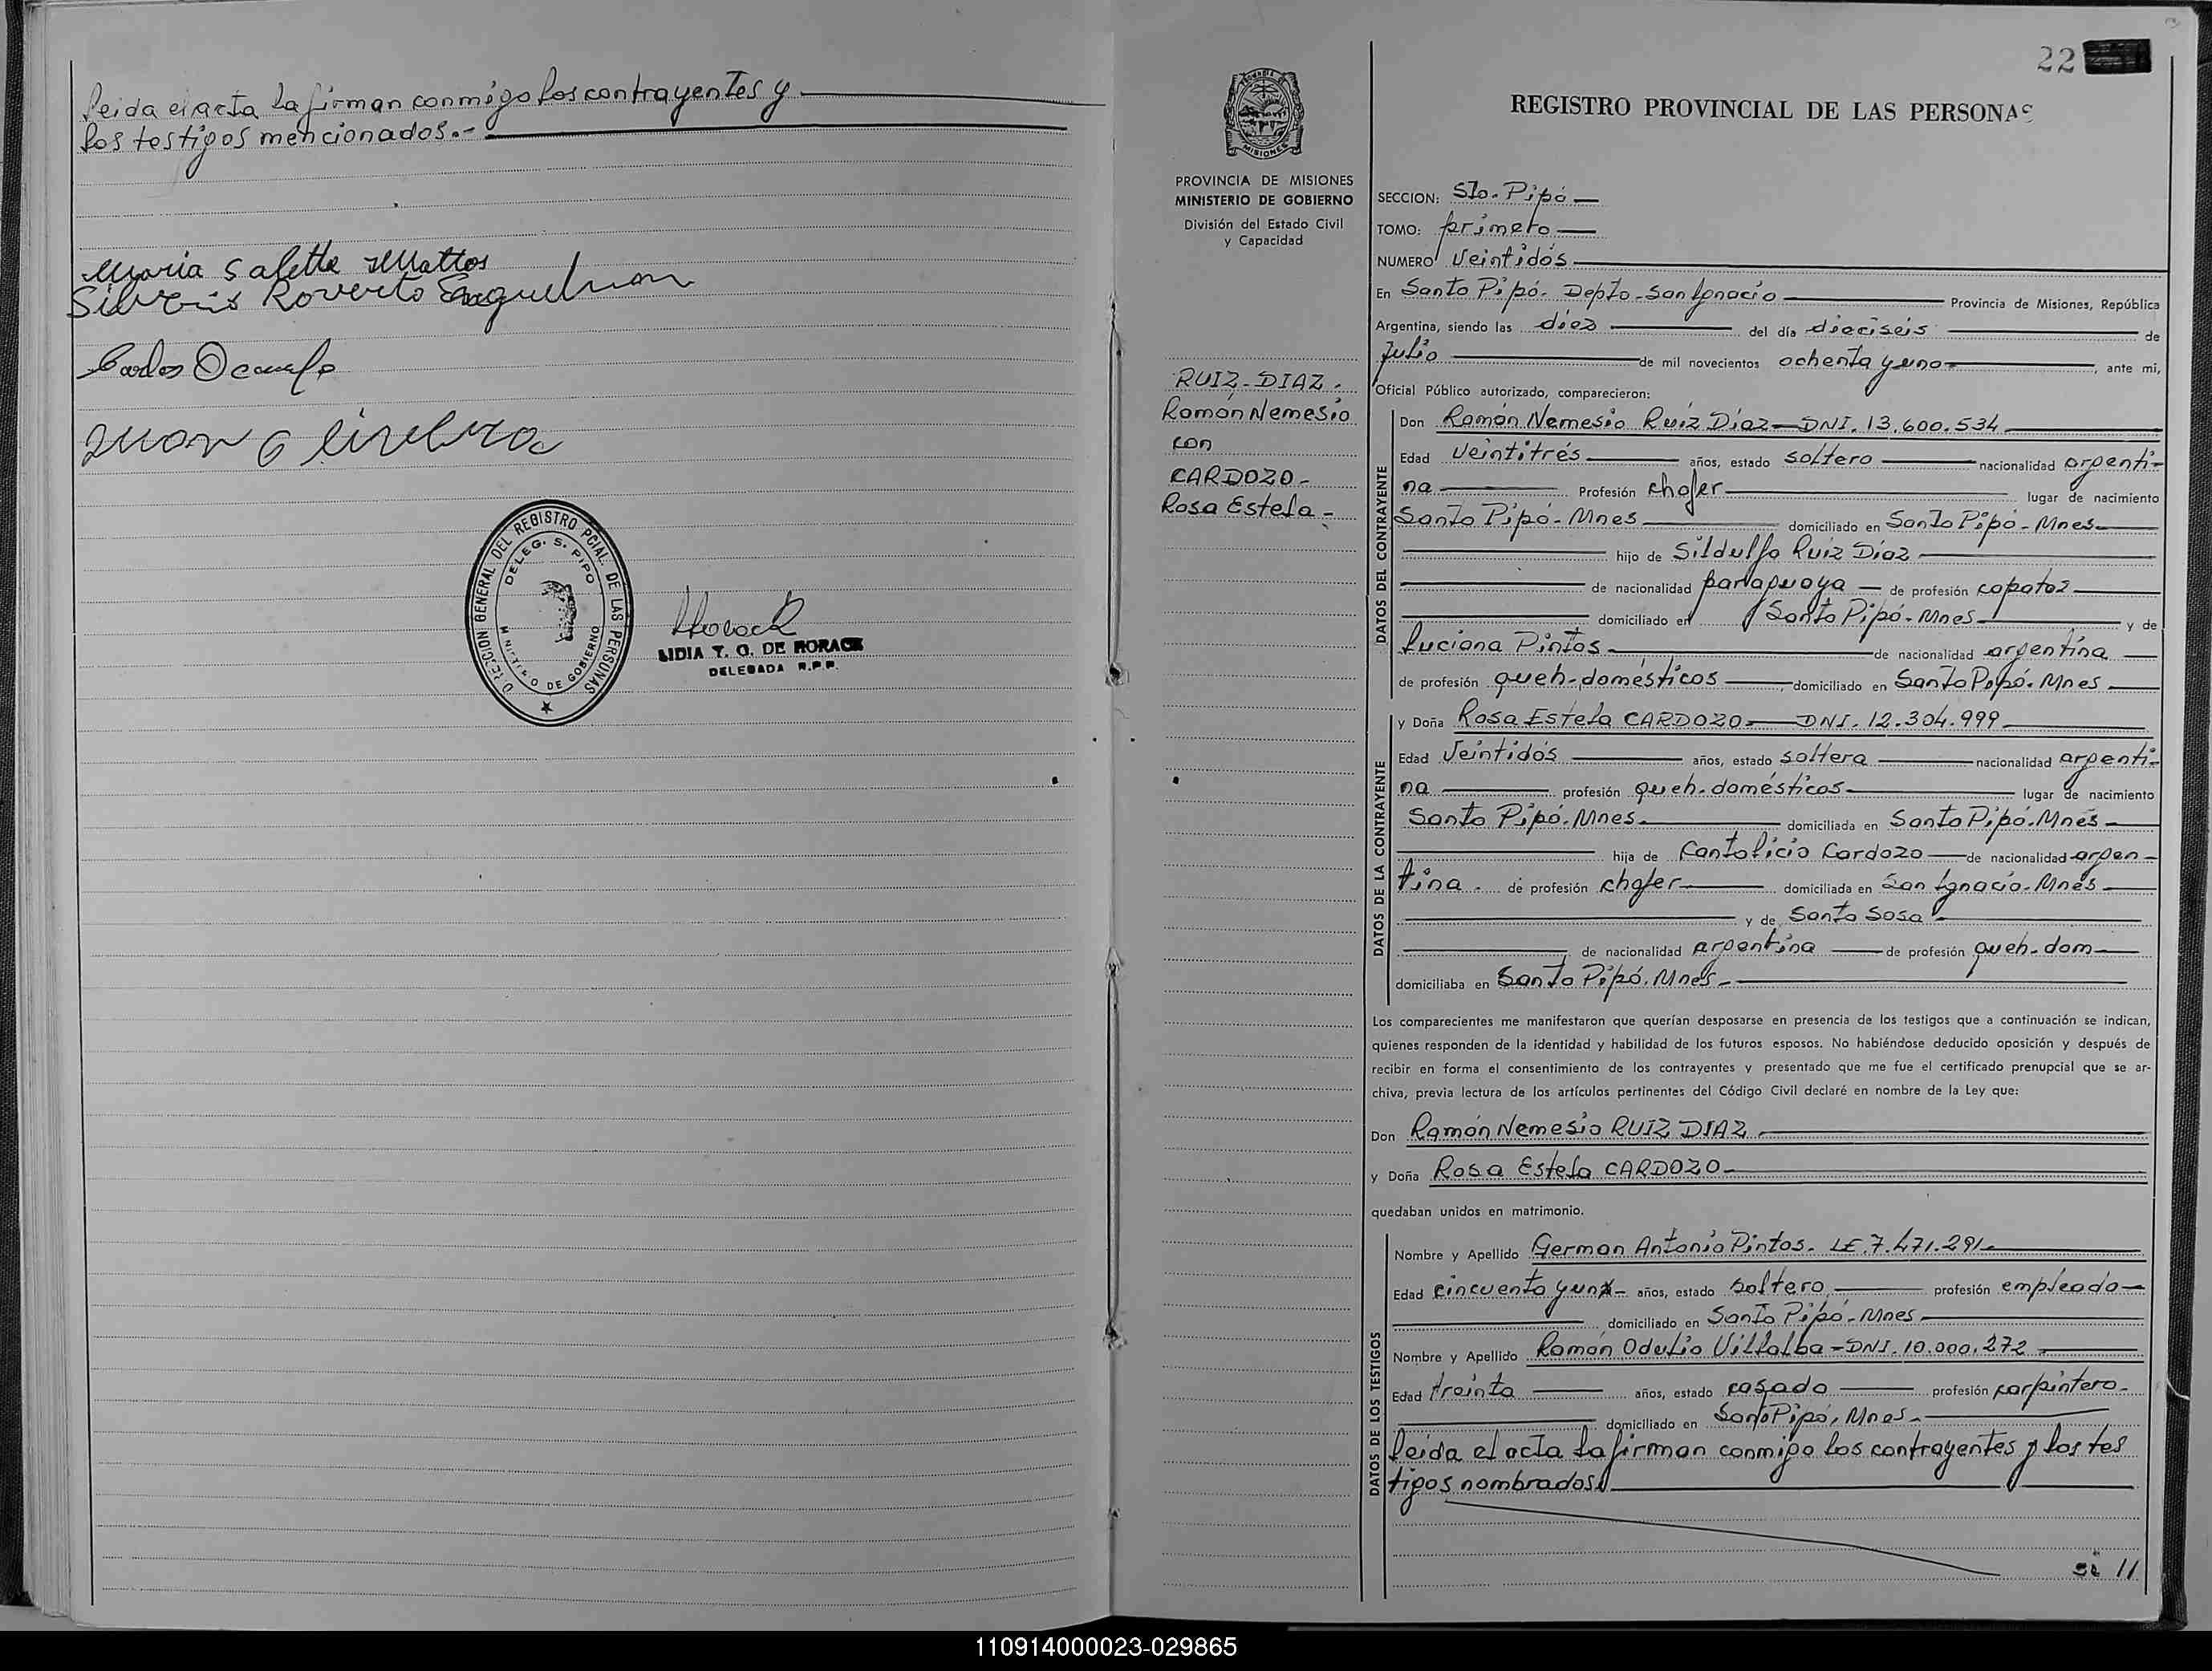 leida el acta la firman conmigo los contrayentes y
los testigos mencionados.-
Maria Salette Mattos
Silverio Roverto
Carlos
Juan
DIRECCION GENERAL DEL REGISTRO PCIAL. DE LAS PERSONAS
DELEG. S. PIPO
MINISTERIO DE GOBIERNO
LIDIA T. O. DE HORACK
DELEGADA R.P.P.
22
PROVINCIA DE MISIONES
MINISTERIO DE GOBIERNO
División del Estado Civil
y Capacidad
RUIZ-DIAZ.
Ramón Nemesio
con
CARDOZO-
Rosa Estela-
REGISTRO PROVINCIAL DE LAS PERSONAS
SECCION: Sto. Pipó
TOMO: primero
NUMERO Veintidós
En Santo Pipó. Depto. San Ignacio Provincia de Misiones, República
Argentina, siendo las diez del día dieciseis de
Julio de mil novecientos ochenta y uno , ante mi,
Oficial Público autorizado, comparecieron:
DATOS DEL CONTRAYENTE
Don Ramón Nemesio Ruiz Díaz-DNI. 13.600.534
Edad Veintitrés años, estado soltero nacionalidad argenti-
na Profesión chofer lugar de nacimiento
Santo Pipó-Mnes domiciliado en Santo Pipó-Mnes
hijo de Sildulfo Ruiz Díaz
de nacionalidad paraguaya de profesión capataz
domiciliado en Santo Pipó-Mnes y de
Luciana Pintos de nacionalidad argentina
de profesión queh-domésticos domiciliado en Santo Pipó.Mnes
DATOS DE LA CONTRAYENTE
y Doña Rosa Estela CARDOZO DNI. 12.304.999
Edad Veintidós años, estado soltera nacionalidad argenti-
na profesión queh.domésticos lugar de nacimiento
Santo Pipó.Mnes domiciliada en Santo Pipó.Mnes
hija de Cantalicio Cardozo de nacionalidad argen-
tina de profesión chofer domiciliada en San Ignacio-Mnes
y de Santa Sosa
de nacionalidad argentina de profesión queh-dom
domiciliaba en Santo Pipó.Mnes
Los comparecientes me manifestaron que querían desposarse en presencia de los testigos que a continuación se indican,
quienes responden de la identidad y habilidad de los futuros esposos. No habiéndose deducido oposición y después de
recibir en forma el consentimiento de los contrayentes y presentado que me fue el certificado prenupcial que se ar-
chiva, previa lectura de los artículos pertinentes del Código Civil declaré en nombre de la Ley que:
Don Ramón Nemesio RUIZ DIAZ
y Doña Rosa Estela CARDOZO
quedaban unidos en matrimonio.
DATOS DE LOS TESTIGOS
Nombre y Apellido German Antonio Pintos. LE.7.471.291
Edad cincuenta y uno años, estado soltero profesión empleado
domiciliado en Santo Pipó-Mnes
Nombre y Apellido Ramón Odulio Villalba-DNI. 10.000.272
Edad treinta años, estado casado profesión carpintero
domiciliado en Santo Pipó, Mnes
leida el acta la firman conmigo los contrayentes y los tes
tigos nombrados
11
110914000023-029865